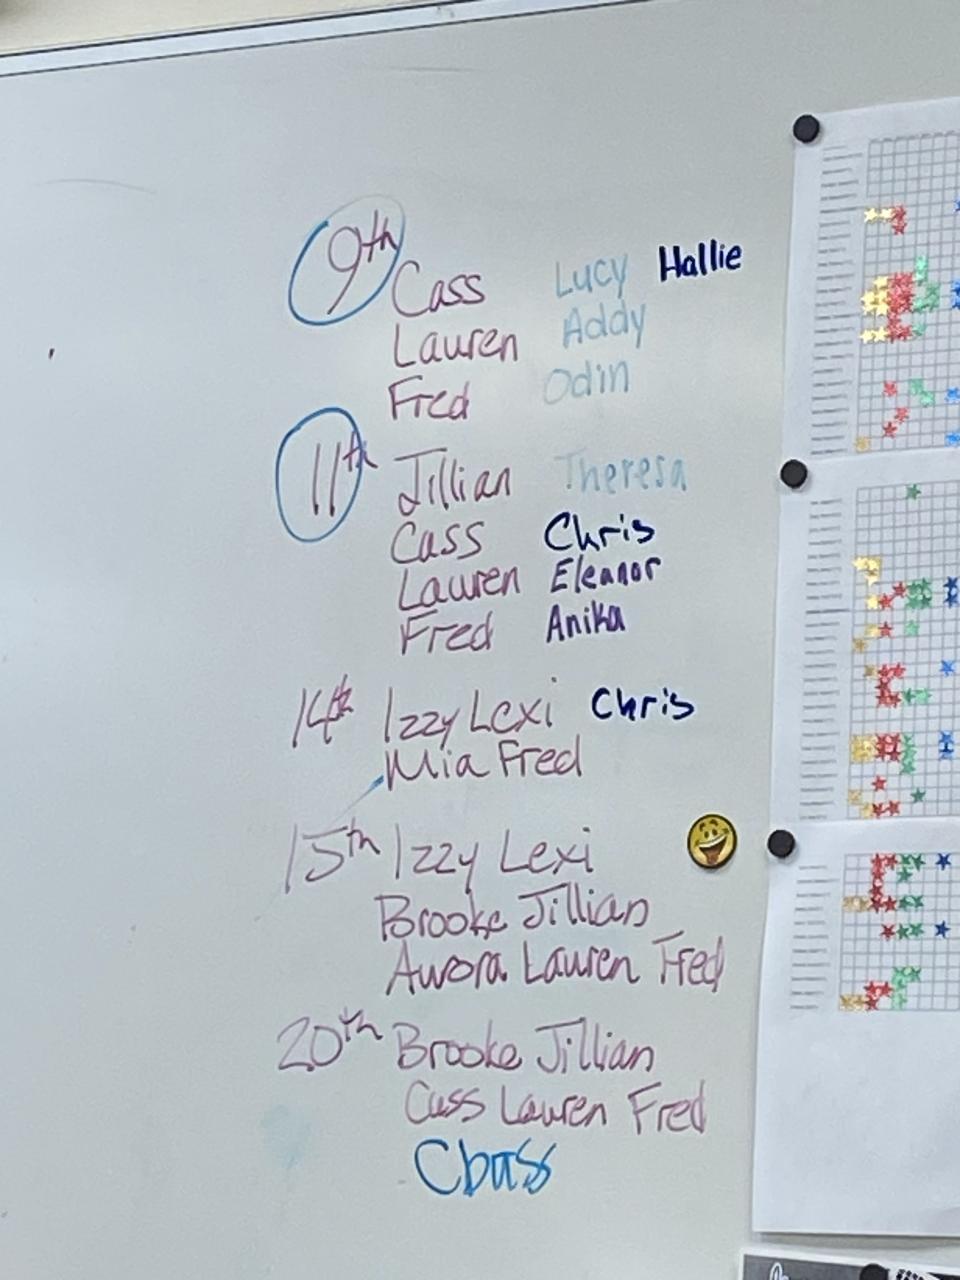 9th
Cass Lucy Hallie
Lauren Addy
Fred Odin
11th Jillian Theresa
Cass Chris
Lauren Eleanor
Fred Anika
14th Izzy Lexi Chris
Mia Fred
15th Izzy Lexi
Brooke Jillian
Aurora Lauren Fred
20th Brooke Jillian
Cass Lauren Fred
Cbass